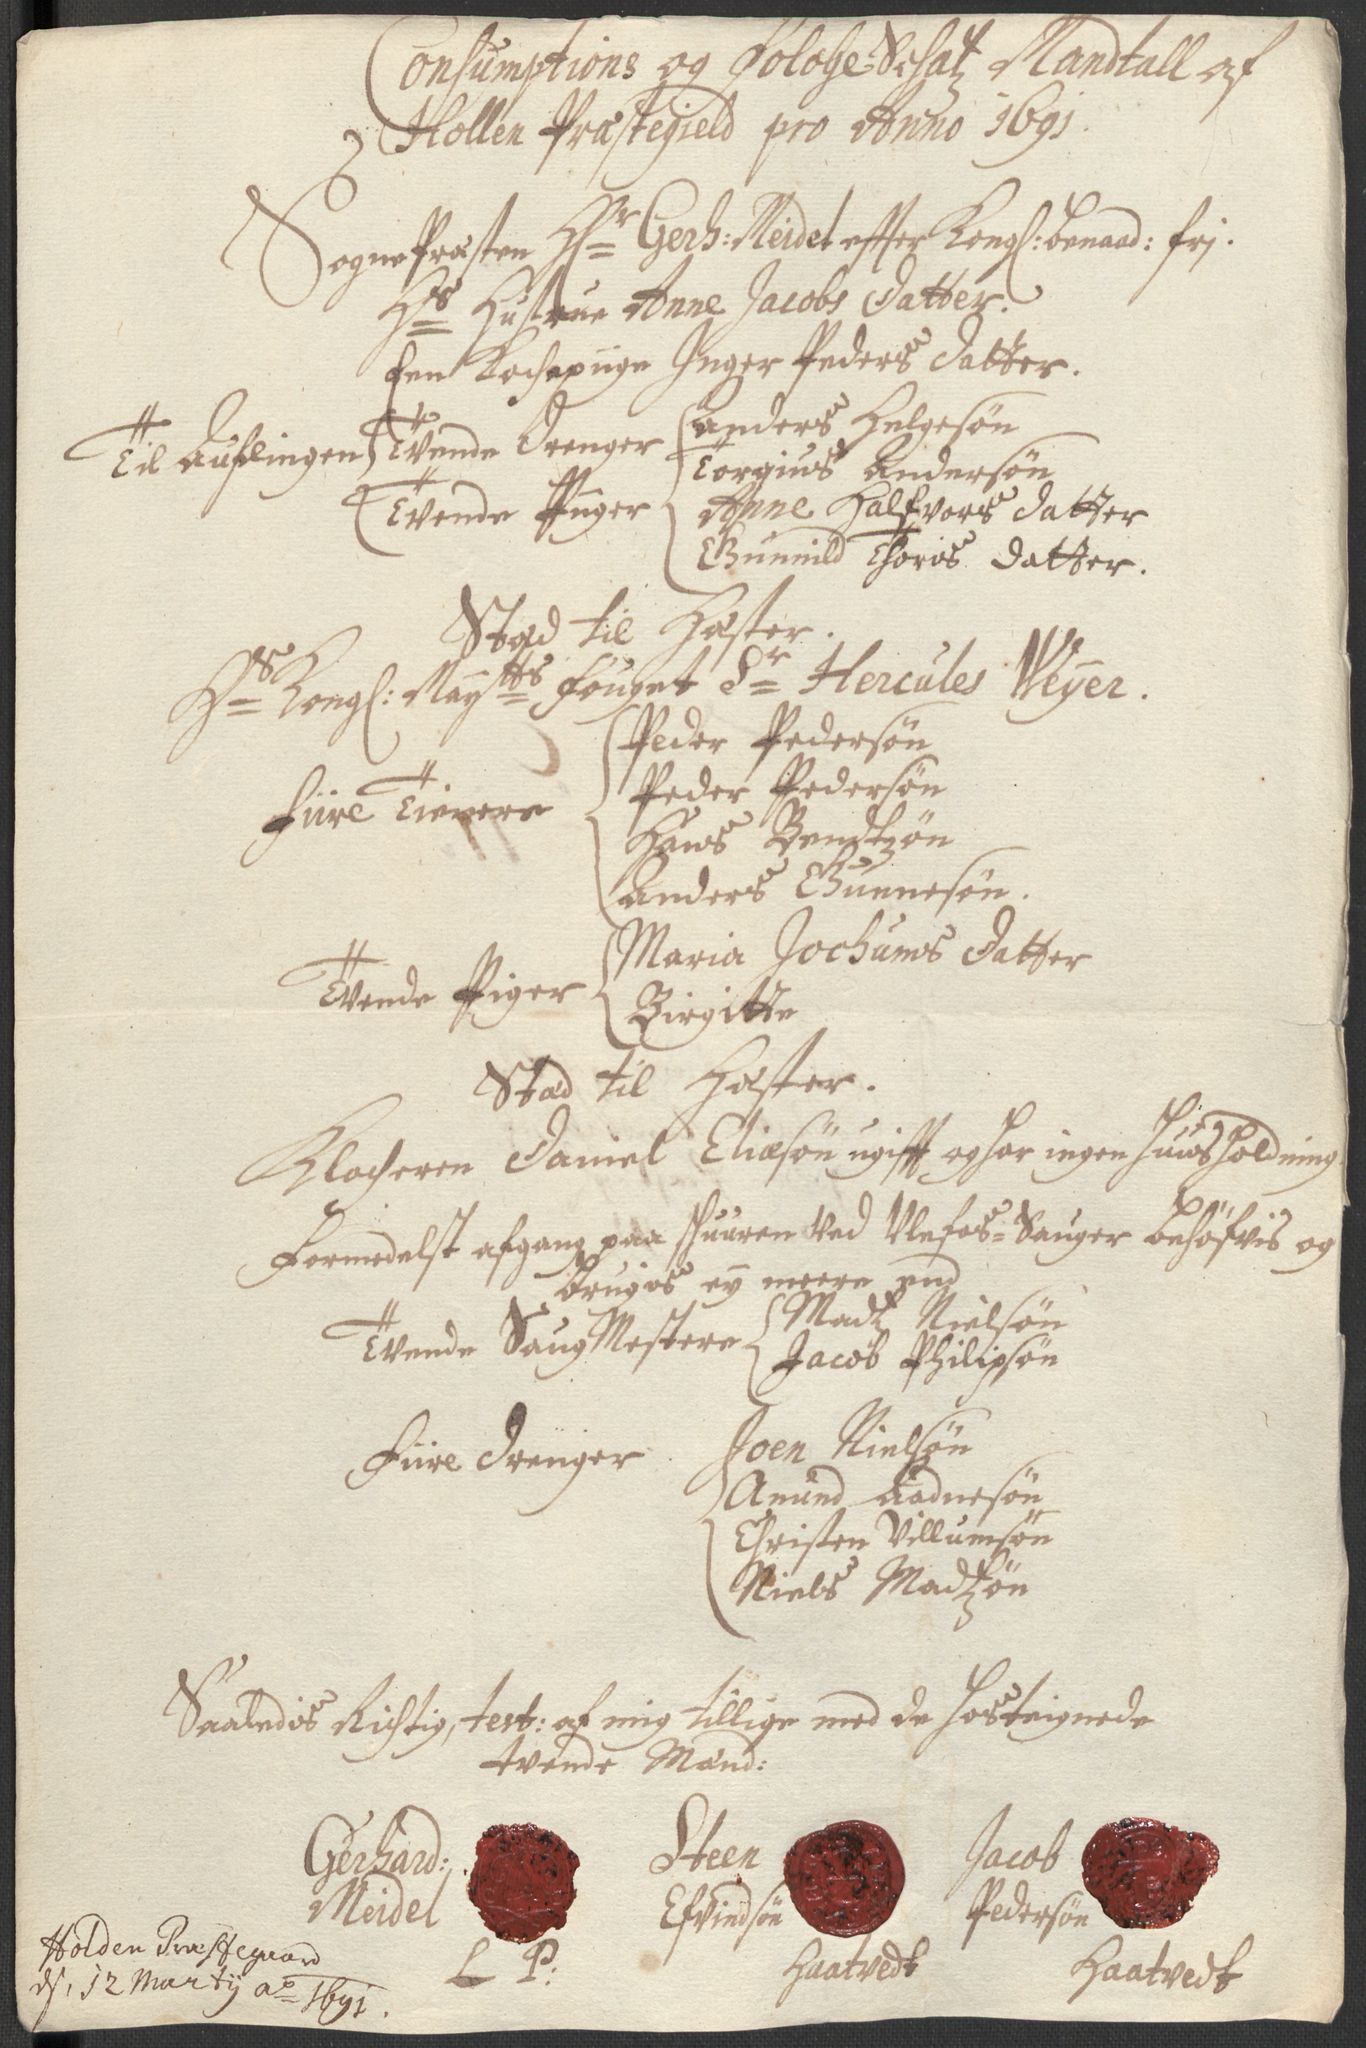 Consumptions og Folche Schatz Mandtall af
Hollen Præstegield pro Anno 1691.
SognePræsten Hr Gerh: Meidel efter Kongl: benaad: fri.
Hs Hustrue Anne Jacobs datter.
Een Kochepiige Inger Peders datter.
Til Auflingen Tvende drenger Anders Helgesøn
Torgius Andersøn
Tvende Piiger Anne Halfvors datter
Gunnild Thoris datter.
Stæd til Hæster.
Hs Kongl: Maytts Fouget Sr Hercules Weyer.
Fiire Tienere Peder Pedersøn
Peder Pedersøn
Hans Bendtzøn
Anders Gunnesøn.
Tvende Piger Maria Jochums datter
Birgitte
Stæd til Hæster.
Klocheren Daniel Eliæsøn ugift og har ingen Huusholdning
Formedelst afgang paa schuuren ved Ulefos-Sauger behøfvis og
brugis ey meere end
Tvende SaugMestere Madtz Nielsøn
Jacob Philipsøn
Fiire drenger Joen Nielsøn
Amund Aadnesøn
Christen Villumsøn
Niels Madtzøn
Saaledis Richtig, test: af mig tillige med de hosteignede
tvende Mænd:
Gerhard: Steen Jacob
Meidel Efvindsøn Pedersøn
L P: Haatvedt Haatvedt
Holden Præstegaard
d. 12 Martij ao 1691.